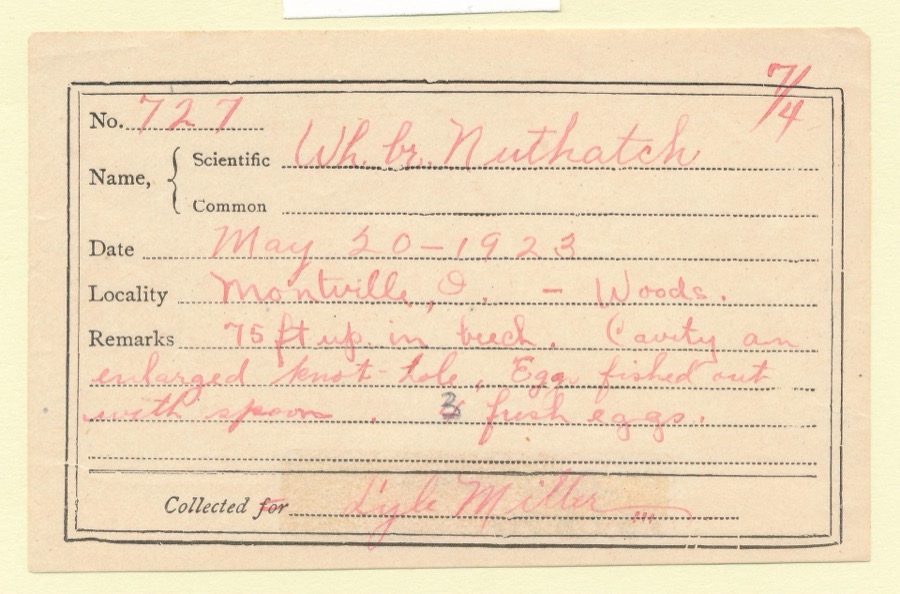 7/4
No. 727
Name, { Scientific Wh. br. Nuthatch
Common
Date May 20-1923
Locality Montville, O. - Woods.
Remarks 75 ft up in beech. Cavity an
enlarged knot-hole. Egg fished out
with spoon. 3 fresh eggs.
Collected for Lyle Miller